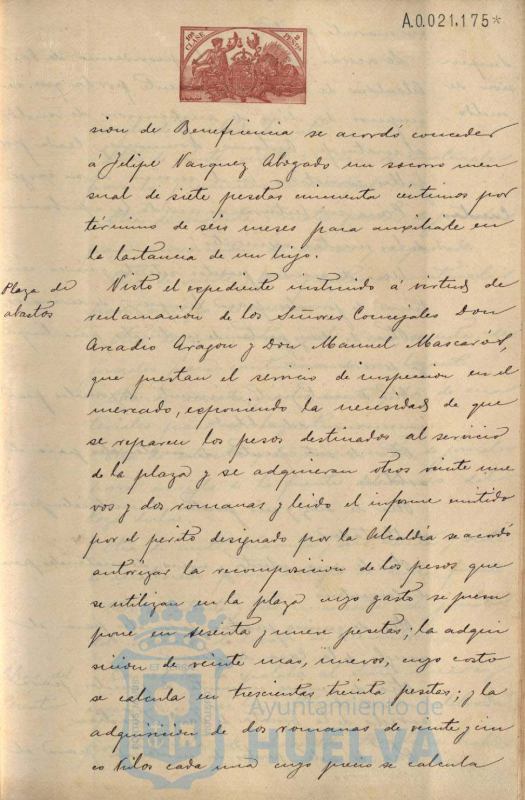 A.0.021.175*
10ª CLASE 2 PESETAS
sion de Beneficencia se acordó conceder
á Felipe Vazquez Abogado un socorro men
sual de siete pesetas cincuenta céntimos por
término de seis meses para auxiliarle en
la lactancia de un hijo.
Plaza de
abastos
Visto el expediente instruido á virtud de
reclamacion de los Señores Concejales Don
Arcadio Aragon y Don Manuel Mascarós,
que prestan el servicio de inspeccion en el
mercado, exponiendo la necesidad de que
se reparen los pesos destinados al servicio
de la plaza y se adquieran otros veinte nue
vos y dos romanas y leido el informe emitido
por el perito designado por la Alcaldia se acordó
autorizar la recomposicion de los pesos que
se utilizan en la plaza cuyo gasto se presu
pone en sesenta y nueve pesetas; la adqui
sicion de veinte mas, nuevos, cuyo costo
se calcula en trescientas treinta pesetas; y la
adquisicion de dos romanas de veinte y cin
co kilos cada una cuyo precio se calcula
Ayuntamiento de
HUELVA